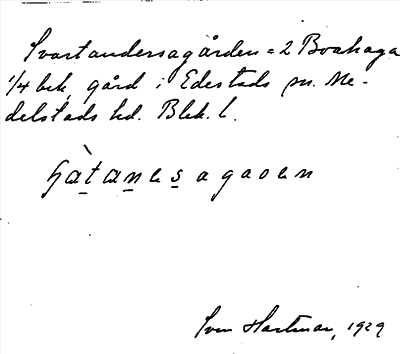 Svartandersagården = 2 Boahaga
1/4 bek. gård i Edestads sn. Me-
delstads hd. Blek. l.
hàtanesagaoen
Sven Hartman, 1929